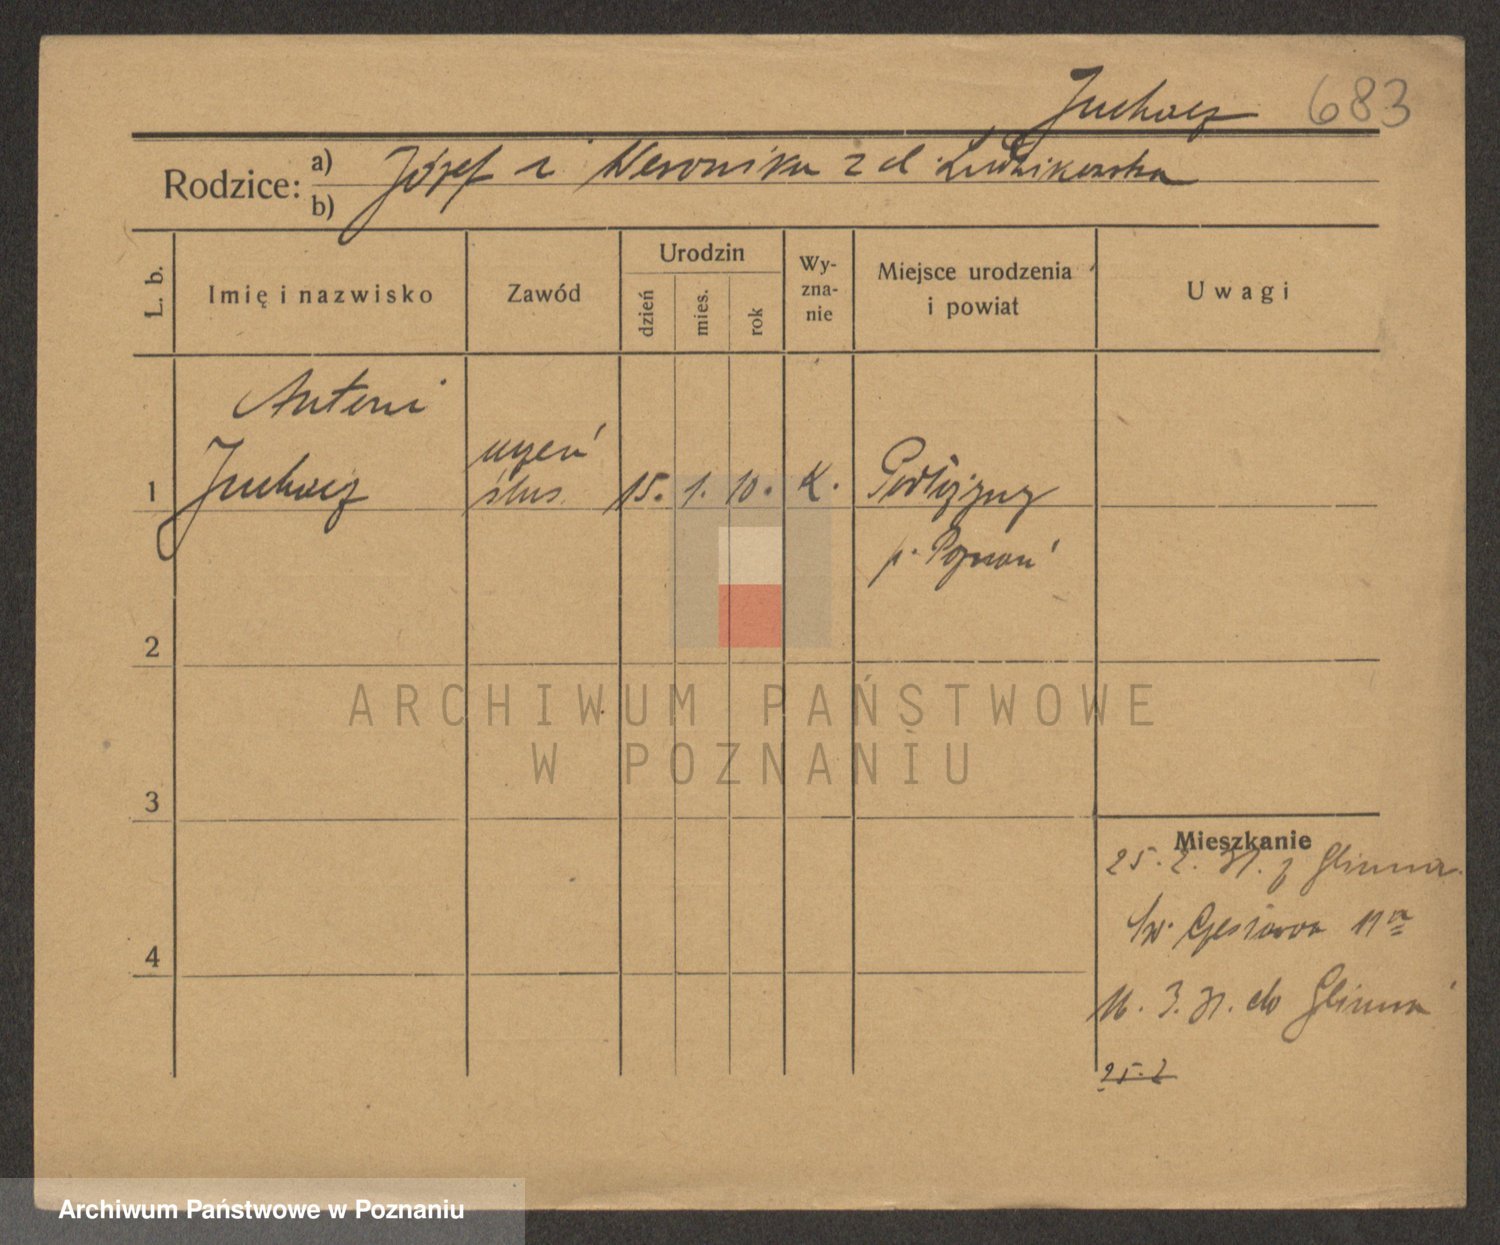 Juchacz 683
Rodzice: a) Józef i Weronika z d. Ludwikowska
b)
L. b. Imię i nazwisko Zawód Urodzin dzień mies. rok Wy-zna-nie Miejsce urodzenia i powiat Uwagi
Antoni
1 Juchacz uczeń ślus. 15. 1. 10. K.
p. Poznań
2
ARCHIWUM PAŃSTWOWE
W POZNANIU
3
Mieszkanie
25. 2. 31. z Glinna
11a
3. 31. do Glinna
4
25. 2
Archiwum Państwowe w Poznaniu